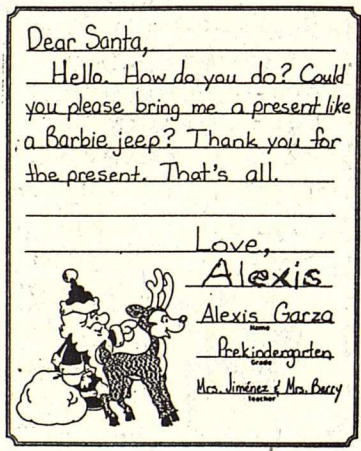 Dear Santa,
Hello. How do you do? Could
you please bring me a present like
a Barbie jeep? Thank you for
the present. That's all.
Love,
Alexis
Alexis Garza
Name
Prekindergarten
Grade
Mrs. Jiménez & Mrs. Berry
Teacher